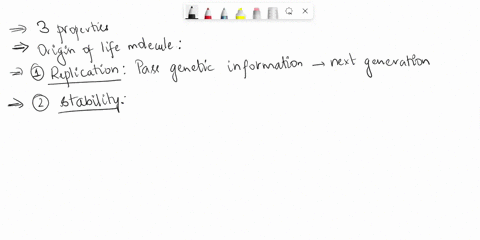 ⇒ 3 properties
⇒ Origin of life molecule:
⇒ ① Replication: Pass genetic information → next generation
⇒ ② Stability: